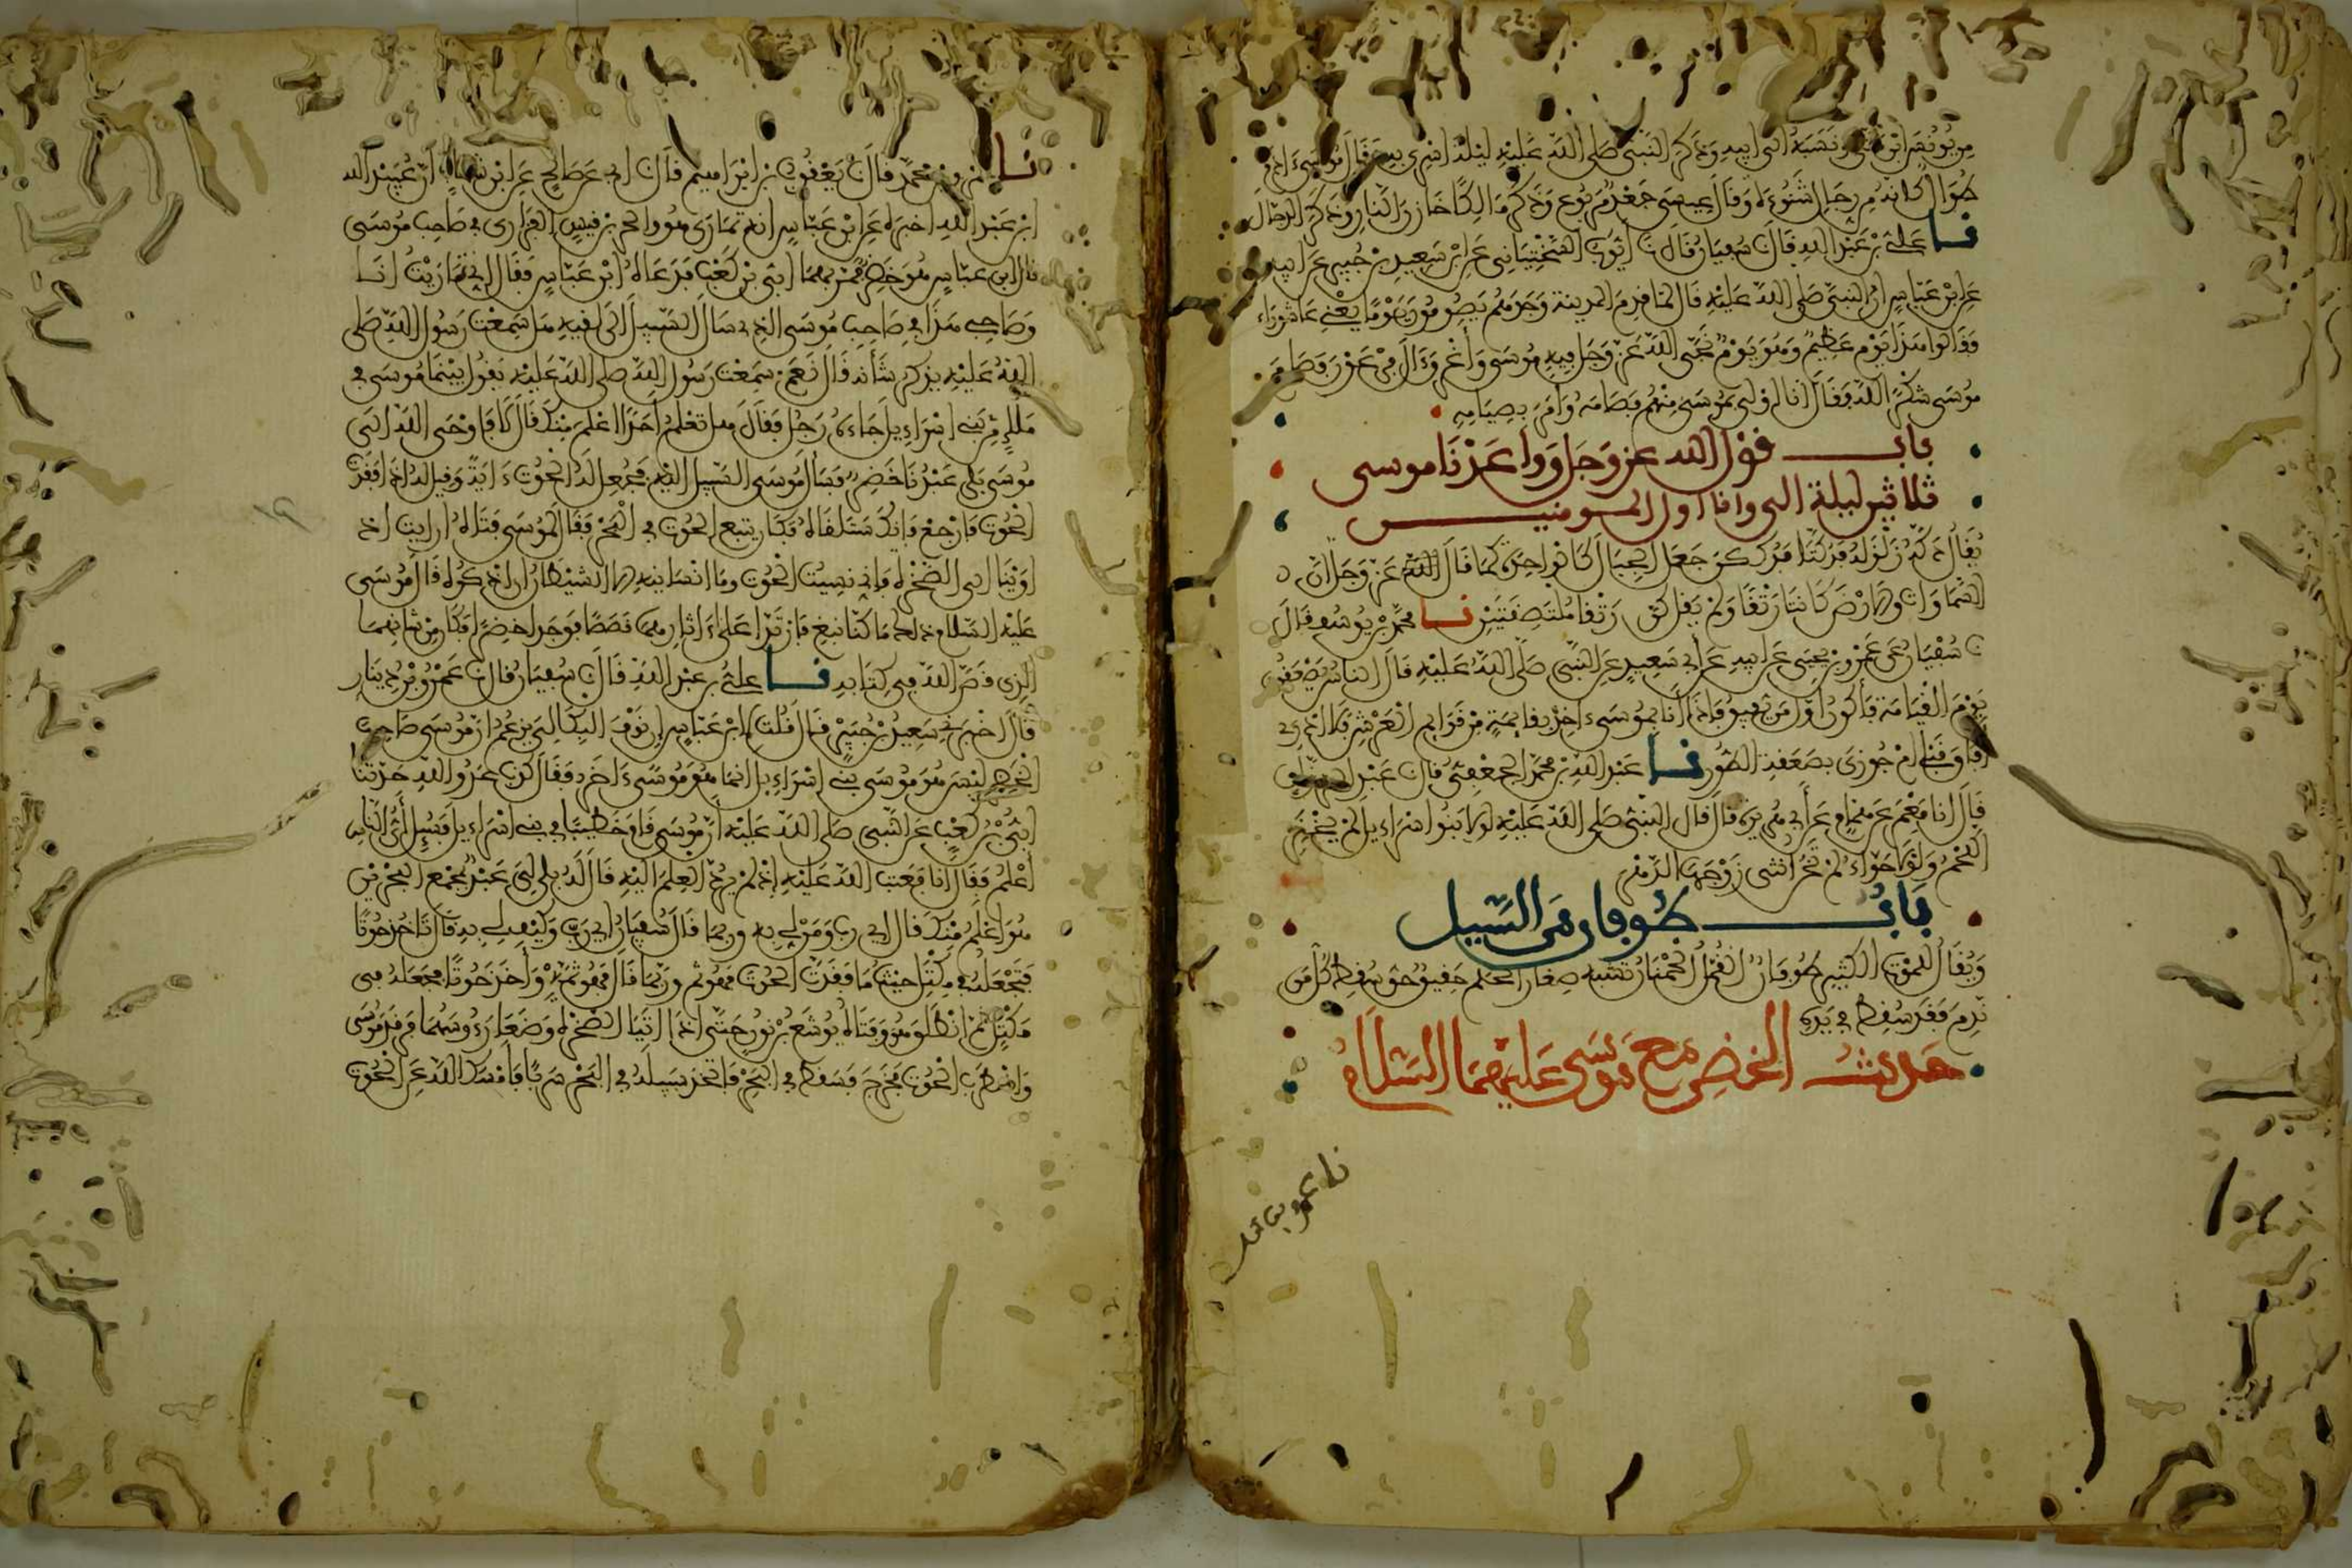 من يونس ابن متى ونسبه الى ابيه وذكر النبي صلى الله عليه ليلة اسري به فقال موسى ءادم
طوال كانه من رجال شنوءة وقال عيسى جعد مربوع وذكر مالكا خازن النار وذكر الدجال
نا علي بن عبد الله قال نا سفيان قال نا ايوب السختياني عن ابن سعيد بن جبير عن ابيه
عن ابن عباس ان النبي صلى الله عليه قال لما قدم المدينة وجدهم يصومون يوما يعني عاشوراء
فقالوا هذا يوم عظيم وهو يوم نجى الله عز وجل فيه موسى واغرق ءال فرعون فصام
موسى شكرا لله فقال انا اولى بموسى منهم فصامه وامر بصيامه
باب قول الله عز وجل وواعدنا موسى
ثلاثين ليلة الى وانا اول المومنين
يقال دكه زلزله فدكتا فدككن جعل الجبال كالواحدة كما قال الله عز وجل ان
السماوات والارض كانتا رتقا ولم يقل كن رتقا ملتصقتين نا محمد بن يوسف قال
نا سفيان عن عمرو بن يحيى عن ابيه عن ابي سعيد عن النبي صلى الله عليه قال الناس يصعقون
يوم القيامة فاكون اول من يفيق فاذا انا بموسى ءاخذ بقايمة من قوايم العرش فلا ادري
افاق قبلي ام جوزي بصعقة الطور نا عبد الله بن محمد الجعفي قال نا عبد الرزاق
قال انا معمر عن همام عن ابي هريرة قال قال النبي صلى الله عليه لولا بنوا اسراءيل لم يخنز
اللحم ولولا حواء لم تخن انثى زوجها الدهر
باب طوفان من السيل
ويقال للموت الكثير طوفان القمل الحمنان تشبه صغار الحلم حقيق حق سقط كل من
ندم فقد سقط في يده
حديث الخضر مع موسى عليهما السلام
نا عمرو بن محمد
نا عمرو بن محمد قال نا يعقوب بن ابراهيم قال نا ابي عن صالح عن ابن شهاب ان عبيد الله
ابن عبد الله اخبره عن ابن عباس انه تمارى هو والحر بن قيس الفزاري في صاحب موسى
قال ابن عباس هو خضر فمر بهما ابي بن كعب فدعاه ابن عباس فقال اني تماريت انا
وصاحبي هذا في صاحب موسى الذي سال السبيل الى لقيه هل سمعت رسول الله صلى
الله عليه يذكر شأنه قال نعم سمعت رسول الله صلى الله عليه يقول بينما موسى في
ملإ من بني اسراءيل جاءه رجل فقال هل تعلم احدا اعلم منك قال لا فاوحى الله الى
موسى بلى عبدنا خضر فسال موسى السبيل اليه فجعل له الحوت ءاية وقيل له اذا فقدت
الحوت فارجع فانك ستلقاه فكان يتبع الحوت في البحر فقال لموسى فتاه ارايت اذ
اوينا الى الصخرة فاني نسيت الحوت وما انسانيه الا الشيطان ان اذكره قال موسى
عليه السلام ذلك ما كنا نبغ فارتدا على ءاثارهما قصصا فوجدا خضرا فكان من شانهما
الذي قص الله في كتابه نا علي بن عبد الله قال نا سفيان قال نا عمرو بن دينار
قال اخبرني سعيد بن جبير قال قلت لابن عباس ان نوف البكالي يزعم ان موسى صاحب
الخضر ليس هو موسى بني اسراءيل انما هو موسى ءاخر فقال كذب عدو الله حدثنا
ابي بن كعب عن النبي صلى الله عليه ان موسى قام خطيبا في بني اسراءيل فسيل أي الناس
اعلم فقال انا فعتب الله عليه اذ لم يرد العلم اليه فقال له بلى لي عبد بمجمع البحرين
هو اعلم منك قال اي رب ومن لي به وربما قال سفيان اي رب وكيف لي به قال تاخذ حوتا
فتجعله في مكتل حيث ما فقدت الحوت فهو ثم وربما قال فهو ثمه واخذ حوتا فجعله في
مكتل ثم انطلق هو وفتاه يوشع بن نون حتى اذا اتيا الصخرة وضعا رءوسهما فرقد موسى
واضطرب الحوت فخرج فسقط في البحر فاتخذ سبيله في البحر سربا فامسك الله عن الحوت